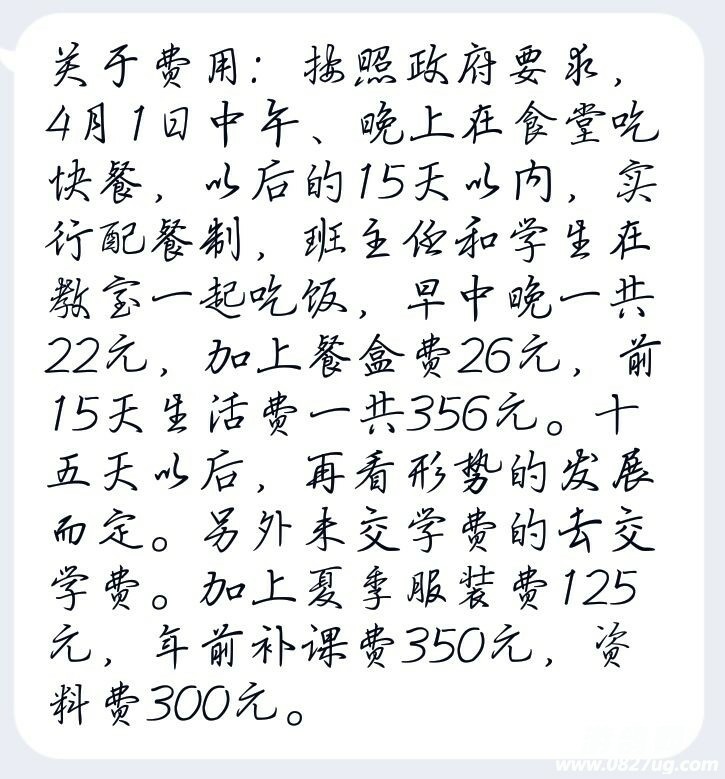 关于费用：按照政府要求，
4月1日中午、晚上在食堂吃
快餐，以后的15天以内，实
行配餐制，班主任和学生在
教室一起吃饭，早中晚一共
22元，加上餐盒费26元，前
15天生活费一共356元。十
五天以后，再看形势的发展
而定。另外未交学费的去交
学费。加上夏季服装费125
元，年前补课费350元，资
料费300元。
www.0827ug.com